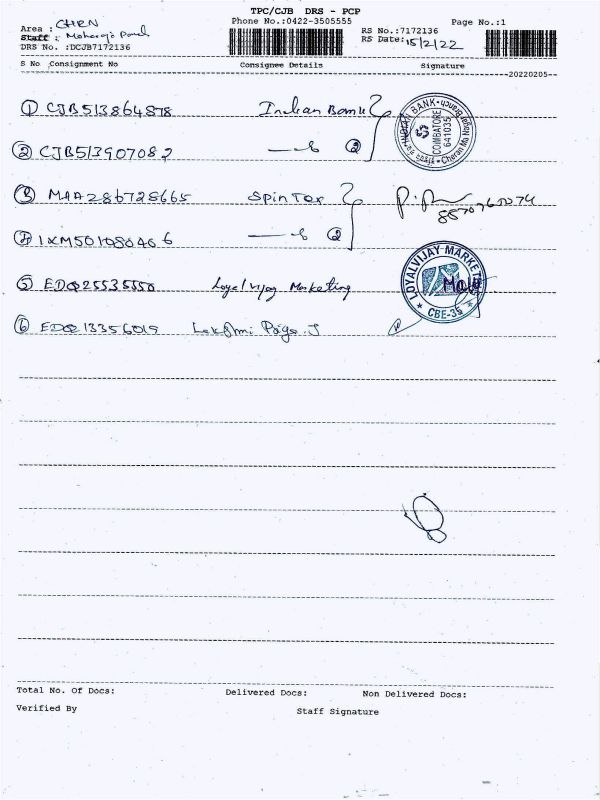 TPC/CJB DRS - PCP
Area : CHRN
Phone No.:0422-3505555
RS No.:7172136
Page No.:1
Staff :
RS Date: 15/2/22
DRS No. :DCJB7172136
S No Consignment No Consignee Details Signature
20220205
1 CJB513864878 Indian Bank
INDIAN BANK
COIMBATORE
641035
2 CJB513907082 2
3 MAA286728665 Spintex
4 IXM501080406 2
5 EDQ25535550 Loyal Vijay Marketing
LOYALVIJAY MARKETING
CBE-35
6 EDQ13356019 Lakshmi Priya. J
Total No. Of Docs: Delivered Docs: Non Delivered Docs:
Verified By Staff Signature